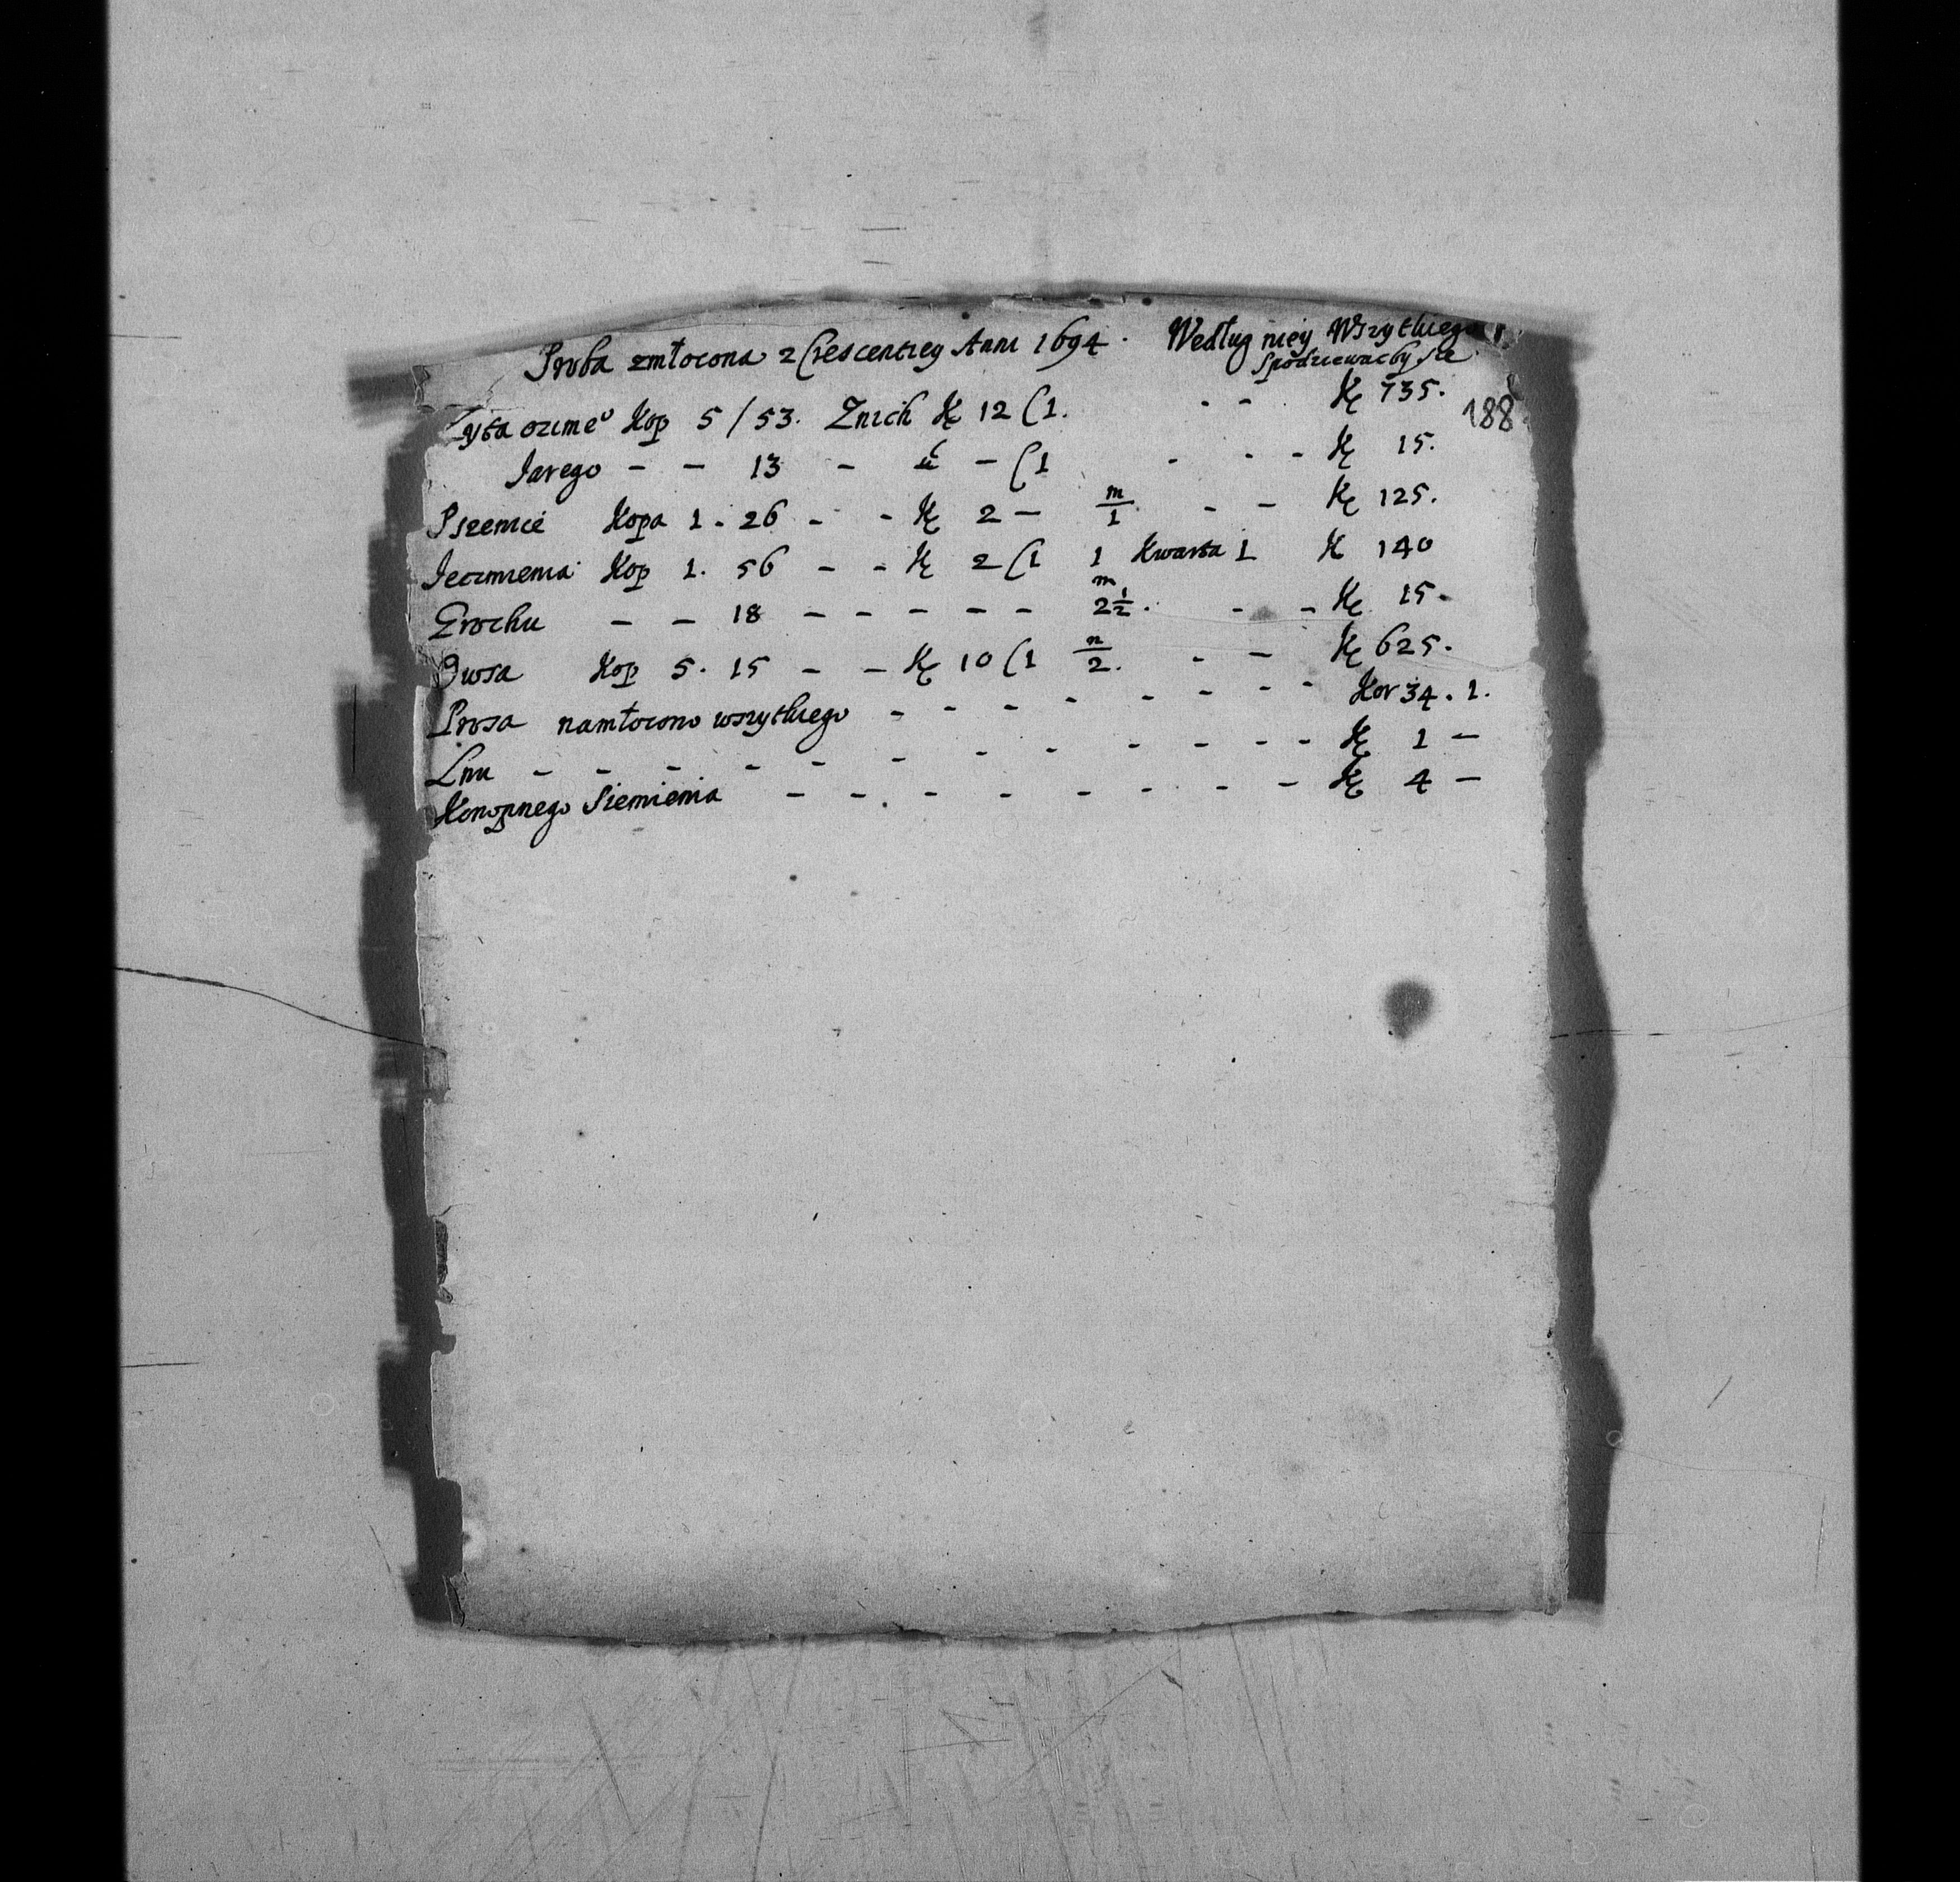 Proba zmłocona z Crescentiey Anni 1694. Według niey Wszytkiego
spodziewacby sie
Zyta ozime° Kop 5/53. Znich K 12 (1. - - K 735.
188
Jarego - - 13 - - (1 - - - K 15.
Pszenice Kopa 1. 26 - - K 2 - m/1. - - K 125.
Jeczmienia Kop 1. 56 - - K 2 (1 1 Kwarta 1 K 140
Grochu - - 18 - - - - - m 2½. - - K 15.
Owsa Kop 5. 15 - - K 10 (1 m/2. - - K 625.
Prosa namłocono wszytkiego - - - - - - - - Kor 34. 1.
Lnu - - - - - - - - - - - - K 1 -
Konopnego Siemienia - - - - - - - - - K 4 -